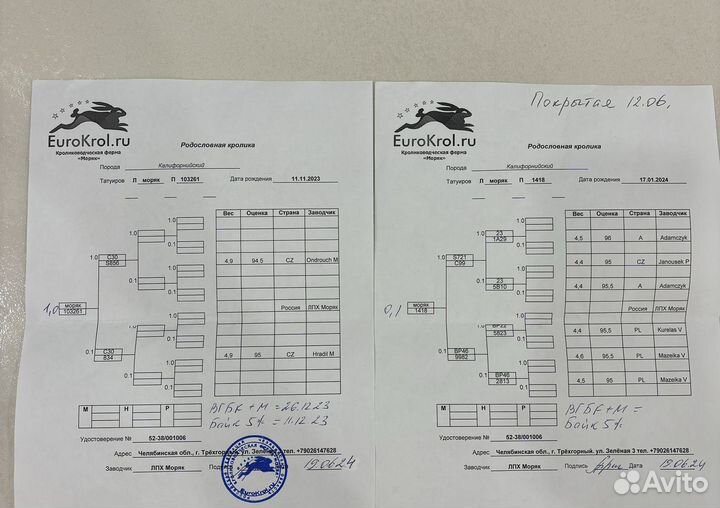 EuroKrol.ru
Кролиководческая ферма
«Моряк»
Родословная кролика
Порода Калифорнийский
Татуиров Л моряк П 103261 Дата рождения 11.11.2023
Вес Оценка Страна Заводчик
1.0
0.1
1.0 С30
S856
4.9 94.5 CZ Ondrouch M
1.0
0.1
1,0 моряк
103261
Россия ЛПХ Моряк
1.0
0.1
0.1 С30
834
4.9 95 CZ Hradil M
1.0
0.1
М Н Р
ВГБК + М = 26.12.23
Байк 5% = 11.12.23
Удостоверение № 52-38/001006
Адрес Челябинская обл., г. Трёхгорный. ул. Зелёная 3 тел. +79026147628
Заводчик ЛПХ Моряк 19.06.24
EuroKrol.ru
Покрытая 12.06,
EuroKrol.ru
Кролиководческая ферма
«Моряк»
Родословная кролика
Порода Калифорнийский
Татуиров Л моряк П 1418 Дата рождения 17.01.2024
Вес Оценка Страна Заводчик
1.0
23
1A29
4,5 96 A Adamczyk
0.1
1.0 S721
C99
4,4 95 CZ Janousek P
1.0
23
5B10
4,4 95,5 A Adamczyk
0.1
0,1 моряк
1418
Россия ЛПХ Моряк
1.0
BP22
5823
4,4 95,5 PL Kurelas V
0.1
0.1 BP46
9982
4,6 95,5 PL Mazeika V
1.0
BP46
2813
4,5 95 PL Mazeika V
0.1
М Н Р
ВГБК + М =
Байк 5%
Удостоверение № 52-38/001006
Адрес Челябинская обл., г. Трёхгорный. ул. Зелёная 3 тел. +79026147628
Заводчик ЛПХ Моряк Подпись Дата 19.06.24
Avito